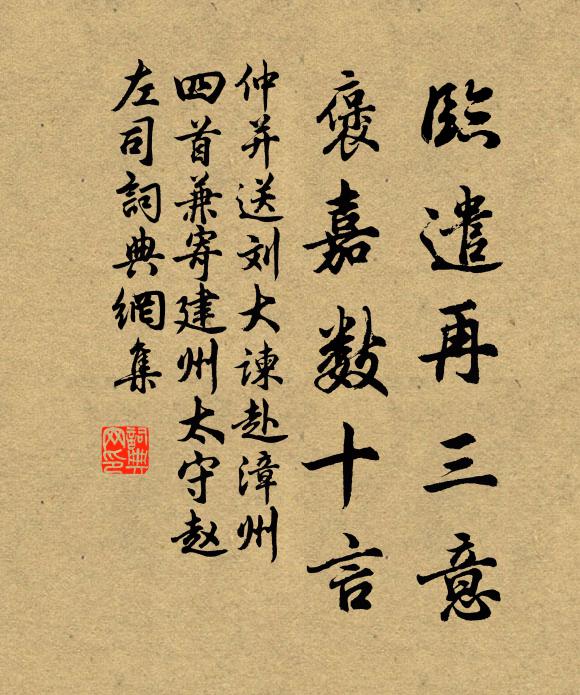 臨遣再三意
褒嘉数十言
仲并送刘大谏赴漳州
四首兼寄建州太守赵
左司詞典網集
詞典
网印